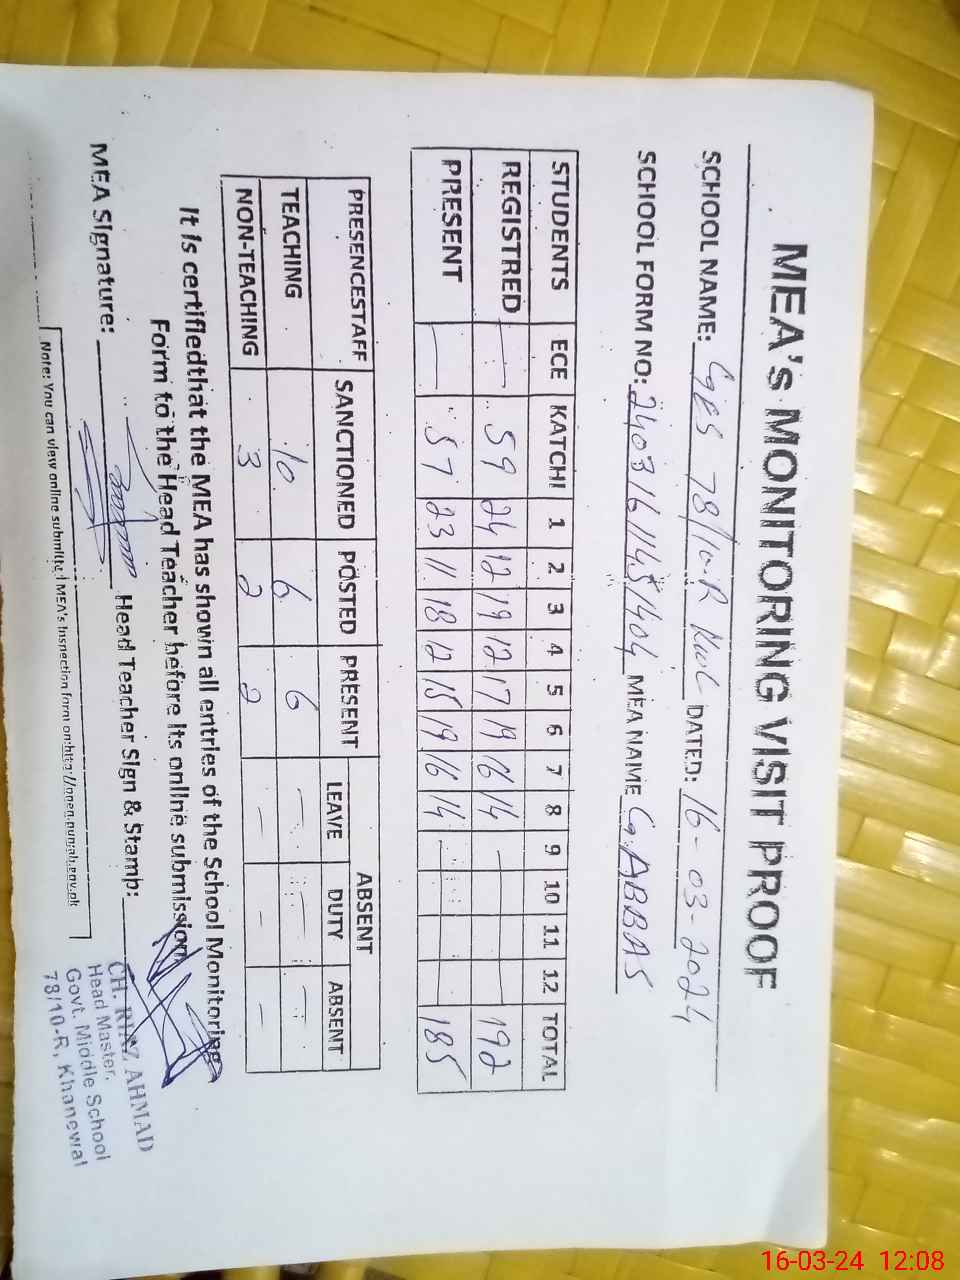 MEA's MONITORING VISIT PROOF
SCHOOL NAME: GES 78/10-R KWL DATED: 16-03-2024
SCHOOL FORM NO: 24031611451404 MEA NAME G.ABBAS
STUDENTS ECE KATCHI 1 2 3 4 5 6 7 8 9 10 11 12 TOTAL
REGISTRED — 59 24 12 19 12 17 19 16 14 — 192
PRESENT — 57 23 11 18 12 15 19 16 14 185
PRESENCESTAFF SANCTIONED POSTED PRESENT ABSENT
LEAVE DUTY ABSENT
TEACHING 10 6 6 — — —
NON-TEACHING 3 2 2 — - —
It is certifiedthat the MEA has shown all entries of the School Monitoring
Form to the Head Teacher before its online submission
MEA Signature: Head Teacher Sign & Stamp:
CH. RIAZ AHMAD
Head Master.
Govt. Middle School
78/10-R, Khanewal
Note: You can view online submitted MEA's Inspection form on:http://open.punjab.gov.pk
16-03-24 12:08